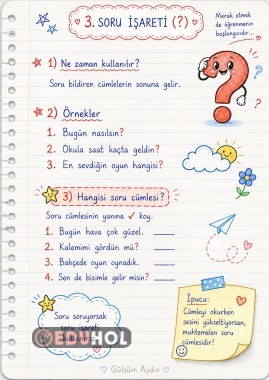 3. SORU İŞARETİ (?)
Merak etmek
de öğrenmenin
başlangıcıdır...
1) Ne zaman kullanılır?
Soru bildiren cümlelerin sonuna gelir.
2) Örnekler
1. Bugün nasılsın?
2. Okula saat kaçta geldin?
3. En sevdiğin oyun hangisi?
3) Hangisi soru cümlesi?
Soru cümlesinin yanına ✓ koy.
1. Bugün hava çok güzel. ____
2. Kalemimi gördün mü? ____
3. Bahçede oyun oynadık. ____
4. Sen de bizimle gelir misin? ____
Soru soruyorsak
soru işareti
İpucu:
Cümleyi okurken
sesini yükseltiyorsan,
muhtemelen soru
cümlesidir!
Gülsüm Aydın